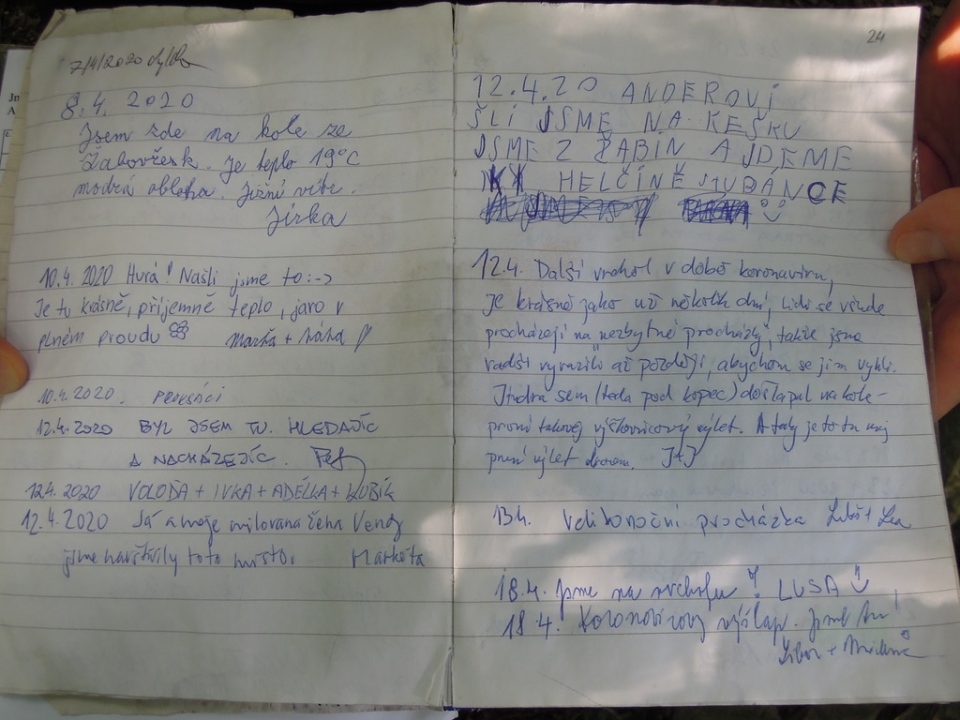 7/4/2020
8.4. 2020
Jsem zde na kole ze
Žabovřesk. Je teplo 19°C
modrá obloha. Jižní vítr.
Jirka
10.4. 2020 Hurá! Našli jsme to :->
Je tu krásně, příjemně teplo, jaro v
plném proudu
10.4.2020.
12.4.2020 BYL JSEM TU. HLEDAJÍC
A NACHÁZEJÍC.
12.4.2020 VOLOĎA + IVKA + ADÉLKA + KUBÍK
12.4.2020 Já a moje milovaná žena
jsme navštívily toto místo. Markéta
24
12.4.20 ANDEROVI
ŠLI JSME NA KEŠKU
JSME Z ŽABIN A JDEME
K HELČINĚ STUDÁNCE
12.4. Další vrchol v době koronaviru,
je krásně jako už několik dní, lidi se všude
procházejí na "nezbytné procházky", takže jsme
radši vyrazili až později, abychom se jim vyhli.
Jindra sem (teda pod kopec) došlapal na kole -
první takovej výškovnicový výlet. A taky je to tu můj
první výlet J+J
13.4. Velikonoční procházka
18.4. Jsme na vrcholu! LUSA
18.4. Koronavirový výšlap. Jsme tu!
Libor +